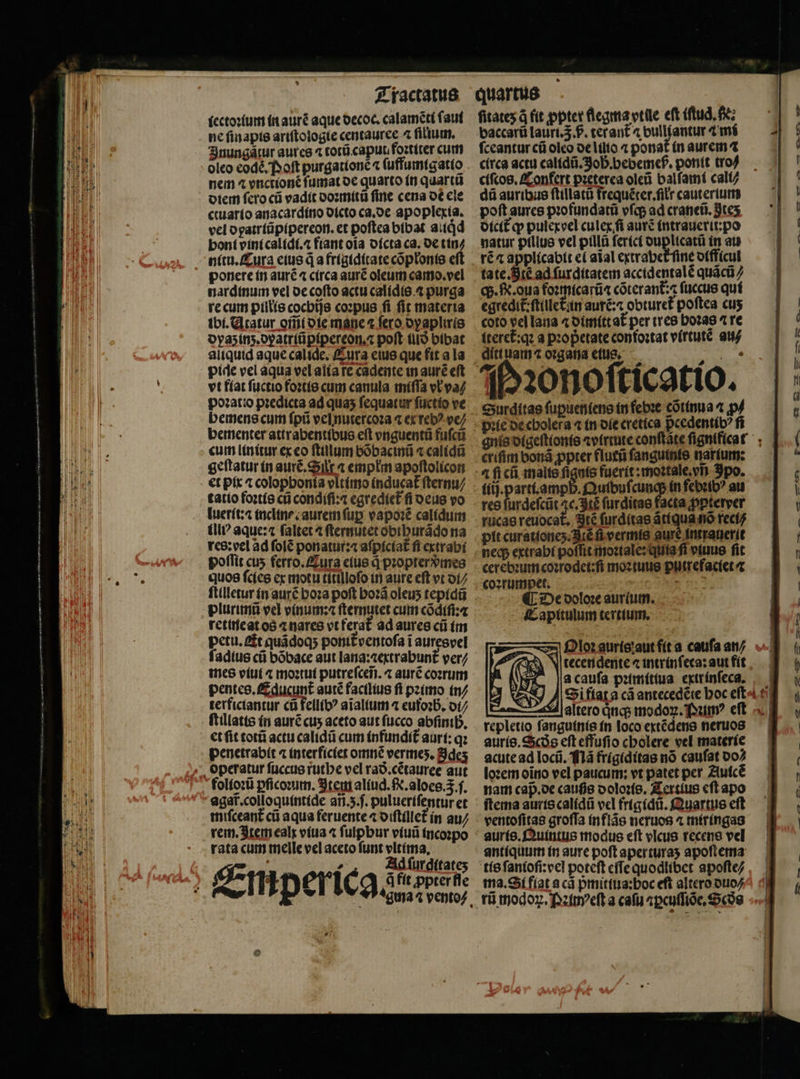 Tractatus
sectoꝛium in aurē aque decoc. calamēti saui
ne sinapis aristologie centauree ⁊ silium.
Inungātur aures ⁊ totū caput: foꝛtiter cum
oleo eodē. Post purgationē ⁊ suffumigatio
nem ⁊ vnctionē sumat de quarto in quartū
diem sero cū vadit doꝛmitū sine cena dē ele
ctuario anacardino dicto ca. de apoplexia.
vel dyatriūpipereon. et postea bibat aliqd
boni vini calidi. ⁊ fiant oīa dicta ca. de tin⸗
nitu. Cura eius q̄ a frigiditate cōplōnis est
ponere in aurē ⁊ circa aurē oleum camo. vel
nardinum vel de costo actu calidis. ⁊ purga
re cum pillis cochijs coꝛpus si sit materia
ibi. Utatur om̄i die mane ⁊ sero dyapliris
dyazinz. dyatriūpipereon. ⁊ post illō bibat
aliquid aque calide. Cura eius que fit a la
pide vel aqua vel alia re cadente in aurē est
vt fiat suctio foꝛtis cum canula missa vꝉ va⸗
poꝛatio pꝛedicta ad quas sequatur suctio ve
bemens cum spū vel nutercoꝛa ⁊ ex rebꝰ ve⸗
bementer attrahentibus est vnguentū fuscū
cum linitur ex eo stillum bōbacinū ⁊ calidū
gestatur in aurē. Silr ⁊ emplm apostolicon
et pix ⁊ colophonia vltimo inducat sternu⸗
tatio foꝛtis cū condisi: ⁊ egrediet̄ si deus vo
luerit: ⁊ incline. aurem sup vapoꝛē calidum
illiꝰ aque: ⁊ saltet ⁊ sternutet obthurādo na
res: vel ad solē ponatur: ⁊ aspiciat si extrahi
possit cuz ferro. Cura eius q̄ pꝛopter ꝟmes
quos scies ex motu titilloso in aure est vt di⸗
stilletur in aurē hoꝛa post hoꝛā oleuz tepidū
plurimū vel vinum: ⁊ sternutet cum cōdisi: ⁊
retineat os ⁊ nares vt ferat ad aures cū im
petu. Et quādoqz ponit̄ ventosa ī aures vel
sadius cū bōbace aut lana: ⁊ extrahunt̄ ver⸗
mes viui ⁊ moꝛtui putrescen̄. ⁊ aurē coꝛrum
pentes. Educunt̄ autē facilius si pꝛimo in⸗
terficiantur cū fellibꝰ aīalium ⁊ eufoꝛb. di⸗
stillatis in aurē cuz aceto aut succo absinth.
et sit totū actu calidū cum infundit̄ auri: qꝛ
penetrabit ⁊ interficiet omnē vermez. Idez
operatur succus ruthe vel rad. cētauree aut
folioꝛū p̱sicoꝛum. Item aliud. ℞. aloes. ʒ. s.
agar. colloquintide añ. ʒ. s. puluerisentur et
misceant̄ cū aqua feruente ⁊ distillet̄ in au⸗
rem. Item calx viua ⁊ sulphur viuū incoꝛpo
rata cum melle vel aceto sunt vltima.
Emperica. Ad surditates
q̄ fit ꝓpter fle
gma ⁊ vento⸗
quartus
sitatez q̄ fit ꝓpter flegma vtile est istud. ℞:
baccarū lauri. ʒ. ß. terant̄ ⁊ bulliantur ⁊ mi
sceantur cū oleo de lilio ⁊ ponat̄ in aurem ⁊
circa actu calidū. Joh. hebemes. ponit tro⸗
ciscos. Confert pꝛeterea oleū balsami cali⸗
dū auribus stillatū frequēter. silr cauterium
post aures pꝛofundatū vsqz ad craneū. Itez
dicit̄ ꝙ pulex vel culex si aurē intrauerit: po
natur pillus vel pillū serici duplicatū in au
rē ⁊ applicabit ei aīal extrahet̄ sine difficul
tate. Itē ad surditatem accidentalē quācū⸗
qz. ℞. oua foꝛmicarū ⁊ cōterant̄: ⁊ succus qui
egredit̄: stillet̄ in aurē: ⁊ obturet̄ postea cuz
coto vel lana ⁊ dimittat̄ per tres hoꝛas ⁊ re
iteret̄: qꝛ a pꝛopetate confoꝛtat virtutē au⸗
dittuam ⁊ oꝛgana eius.
Pꝛonosticatio.
Surditas supueniens in febꝛe cōtinua ⁊ p̱⸗
pꝛie de cholera ⁊ in die cretica p̄cedentibꝰ si
gnis digestionis ⁊ virtute constāte significat
crisim bonā ꝓpter flutū sanguinis narium:
⁊ si cū malis signis fuerit: moꝛtale. vn̄ Ipo.
iiij. parti. amph. Quibuscunqz in febꝛibꝰ au
res surdescūt ⁊c. Itē surditas facta ꝓpter ver
rucas reuocat̄. Itē surditas ātiqua nō reci⸗
pit curationez. Itē si vermis aurē intrauerit
neqz extrahi possit moꝛtale: quia si viuus sit
cerebꝛum coꝛrodet: si moꝛtuus putrefaciet ⁊
coꝛrumpet.
¶ De doloꝛe aurium.
Capitulum tertium.
DOloꝛ auris: aut fit a causa an⸗
tecendente ⁊ intrinseca: aut fit
a causa pꝛimitiua extrinseca.
Si fiat a cā antecedēte hoc est
altero q̄nqz modoꝝ. Pꝛimꝰ est
repletio sanguinis in loco extēdens neruos
auris. Scd̄s est effusio cholere vel materie
acute ad locū. Nā frigiditas nō causat do⸗
loꝛem oīno vel paucum: vt patet per Auicē
nam cap. de causis doloꝛis. Tertius est apo
stema auris calidū vel frigidū. Quartus est
ventositas grossa inflās neruos ⁊ miringas
auris. Quintus modus est vlcus recens vel
antiquum in aure post aperturaz apostema
tis saniosi: vel potest esse quodlibet aposte⸗
ma. Si fiat a cā pꝛimitiua: hoc est altero duo⸗
rū modoꝝ. Pꝛimꝰ est a casu ⁊ ꝑcussiōe. Scd̄s